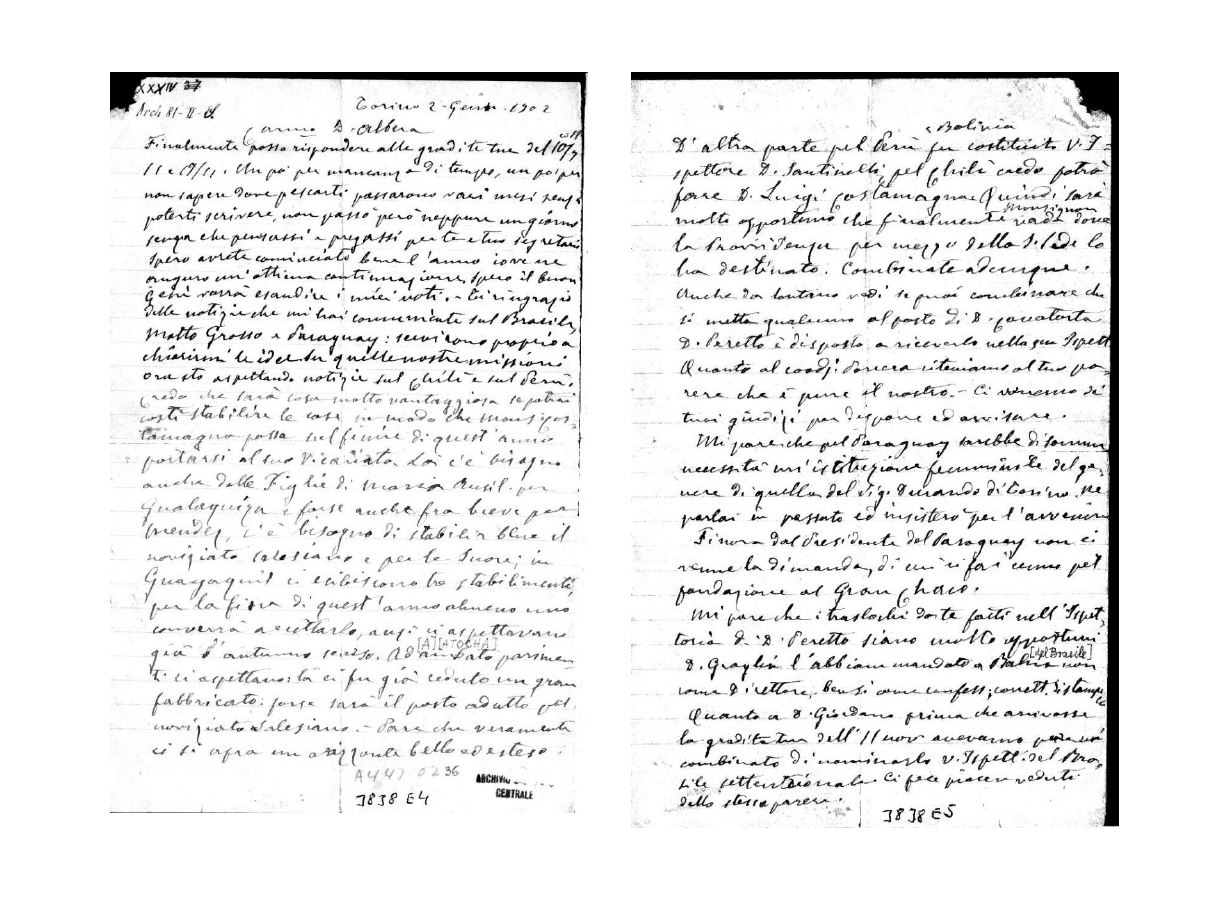 XXXIV 37
Arch 81-II-
Torino 2 - Genn. - 1902
Carmo D. Albera
Finalmente posso rispondere alle gradite tue del 10/7
11 e 19/11. Un po' per mancanza di tempo, un po' per
non sapere dove pescarti passarono varii mesi senza
poterti scrivere, non passò però neppure un giorno
senza che pensassi e pregassi per te e tuo segretario
spero avrete cominciato bene l'anno iove ne
auguro un'ottima continuazione, spero il buon
Gesù vorrà esaudire i miei voti. - Ti ringrazio
delle notizie che mi hai comunicate sul Brasile,
Matto Grosso e Paraguay: servirono proprio a
chiarirmi le idee su quelle nostre missioni
ora sto aspettando notizie sul Chilì e sul Perù.
Credo che sarà cosa molto vantaggiosa se potrai
costì stabilire le cose in modo che Monsig Cos-
tamagna possa sul finire di quest'anno
portarsi al suo Vicariato. Là c'è bisogno
anche delle Figlie di Maria Ausil. per
Gualaquiza e forse anche fra breve per
Mendez, c'è bisogno di stabilir bene il
noviziato salesiano e per le Suore; in
Guayaquil ci esibiscono tre stabilimenti,
per la fine di quest'anno almeno uno
converrà accettarlo, anzi ci aspettavano
già l'autunno scorso. Ad Ambato parimen-
[A] [ATOCHA]
ti ci aspettano: là ci fu già ceduto un gran
fabbricato: forse sarà il posto adatto pel
noviziato Salesiano. - Pare che veramente
ci si apra un orizzonte bello ed esteso.
A447 0236
ARCHIVIO
CENTRALE
3838 E4
e Bolivia
D'altra parte pel Perù fu costituito V. I-
spettore D. Santinelli, pel Chilì credo potrà
fare D. Luigi Costamagna. Quindi sarà
molto opportuno che finalmente Monsignor vada dove
la Provvidenza per mezzo della S. Sede lo
ha destinato. Combinate adunque.
Anche da lontano vedi se puoi combinare che
si metta qualcuno al posto di D.
D. Peretto è disposto a riceverlo nella sua Ispett
Quanto al coadj. ci teniamo al tuo pa-
rere che è pure il nostro. - Ci
tuoi giudizi per disporre ed avvisare.
Mi pare che pel Paraguay sarebbe di somma
necessità un'istituzione femminile del ge-
nere di quella del Sig. Durando di Torino. Ne
parlai in passato ed insisterò per l'avvenire
Finora dal Presidente del Paraguay non ci
venne la dimanda, di cui ci fai cenno pel
fondazione al Gran Chaco.
Mi pare che i traslochi da te fatti nell'Ispet-
toria di D. Peretto siano molto opportuni
[del Brasile]
D. Graglia l'abbiam mandato a Bahia non
come Direttore, bensì come confess; corrett. di stampe
Quanto a D. Giordano prima che arrivasse
la gradita tua dell'11 nov avevamo
combinato di nominarlo V. Ispett. del Bra-
sile settentrionale. Ci fece piacer vederti
dello stesso parere.
3838 E5